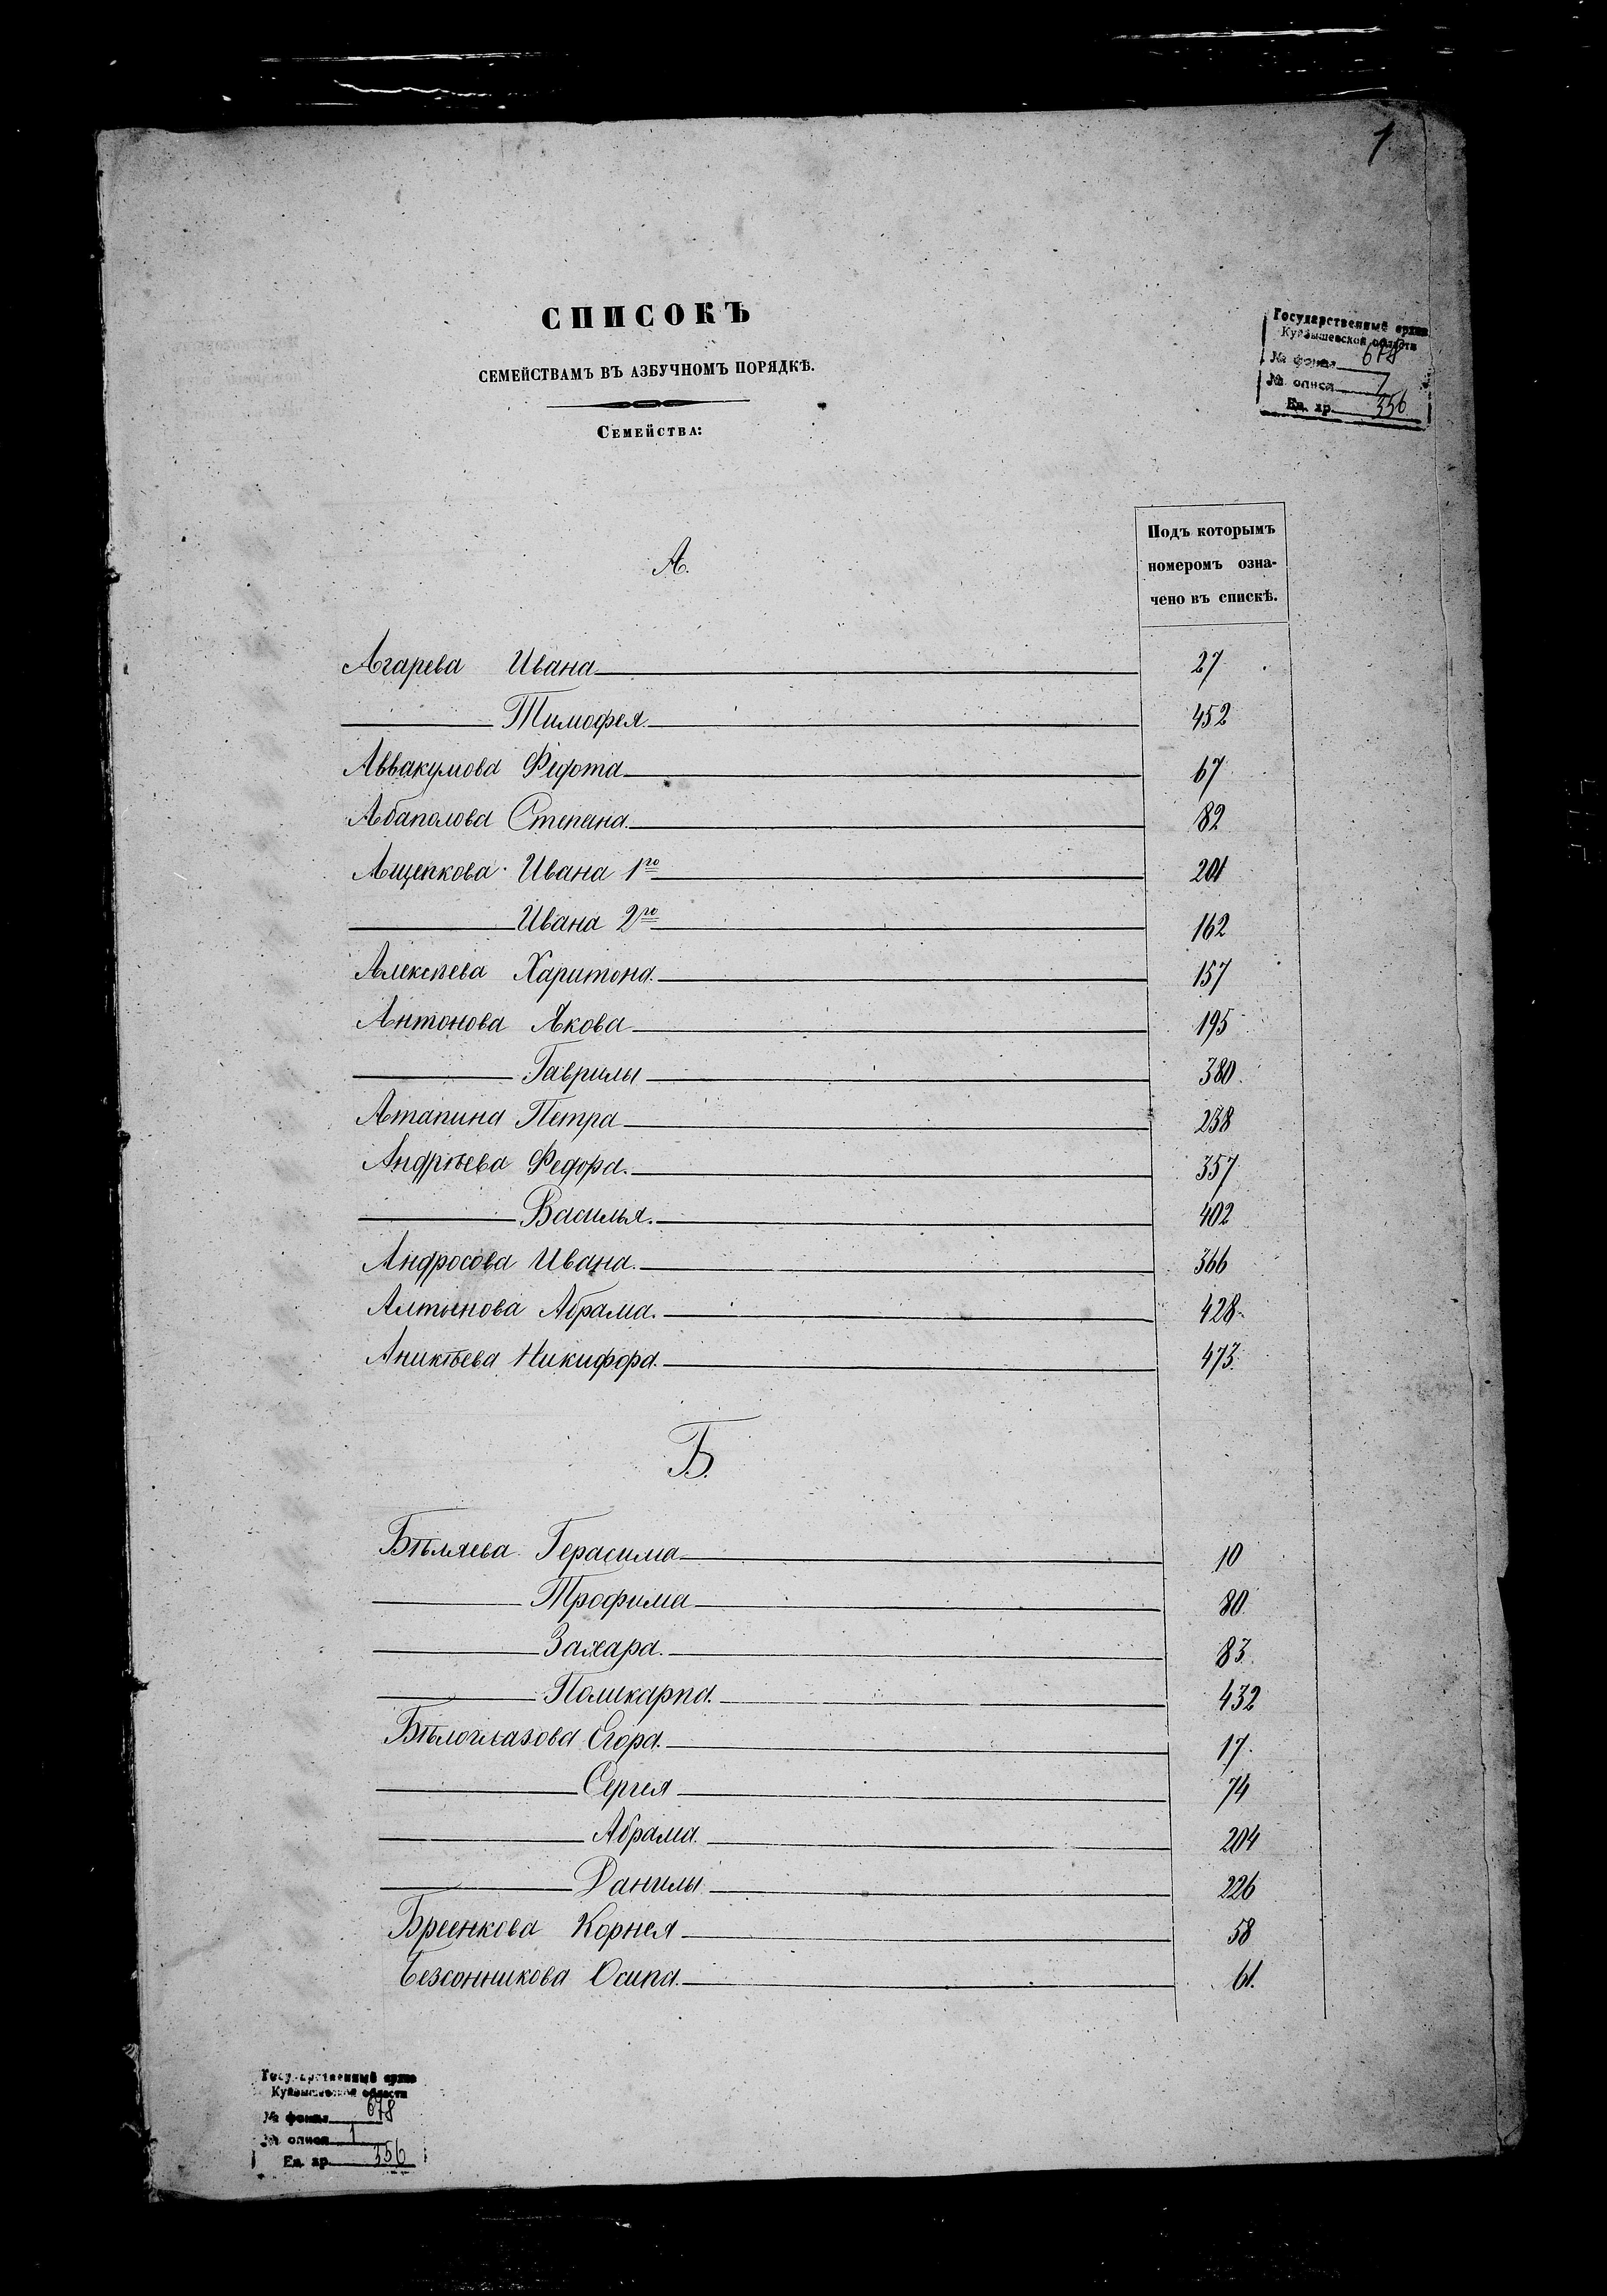 1
СПИСОКЪ
СЕМЕЙСТВАМЪ ВЪ АЗБУЧНОМЪ ПОРЯДКѢ.
Семейства:
Государственный архив
Куйбышевской области
№ фонда 678
№ описи 1
Ед. хр. 356
Подъ которымъ
номеромъ озна-
чено въ спискѣ.
А.
Агарева Ивана 27
Тимофея 452
Аввакумова Федота 67
Абаполова Степана 82
Ащепкова Ивана 1го 201
Ивана 2го 162
Алексѣева Харитона 157
Антонова Якова 195
Гаврилы 380
Атапина Петра 238
Андрѣева Федора 357
Василья 402
Андросова Ивана 366
Алтынова Абрама 428
Аникѣева Никифора 473
Б.
Бѣляева Герасима 10
Трофима 80
Захара 83
Поликарпа 432
Бѣлоглазова Егора 17
Сергея 74
Абрама 204
Данилы 226
Бреенкова Корнея 58
Безсонникова Осипа 61.
Государственный архив
Куйбышевской области
№ фонда 678
№ описи 1
Ед. хр. 356